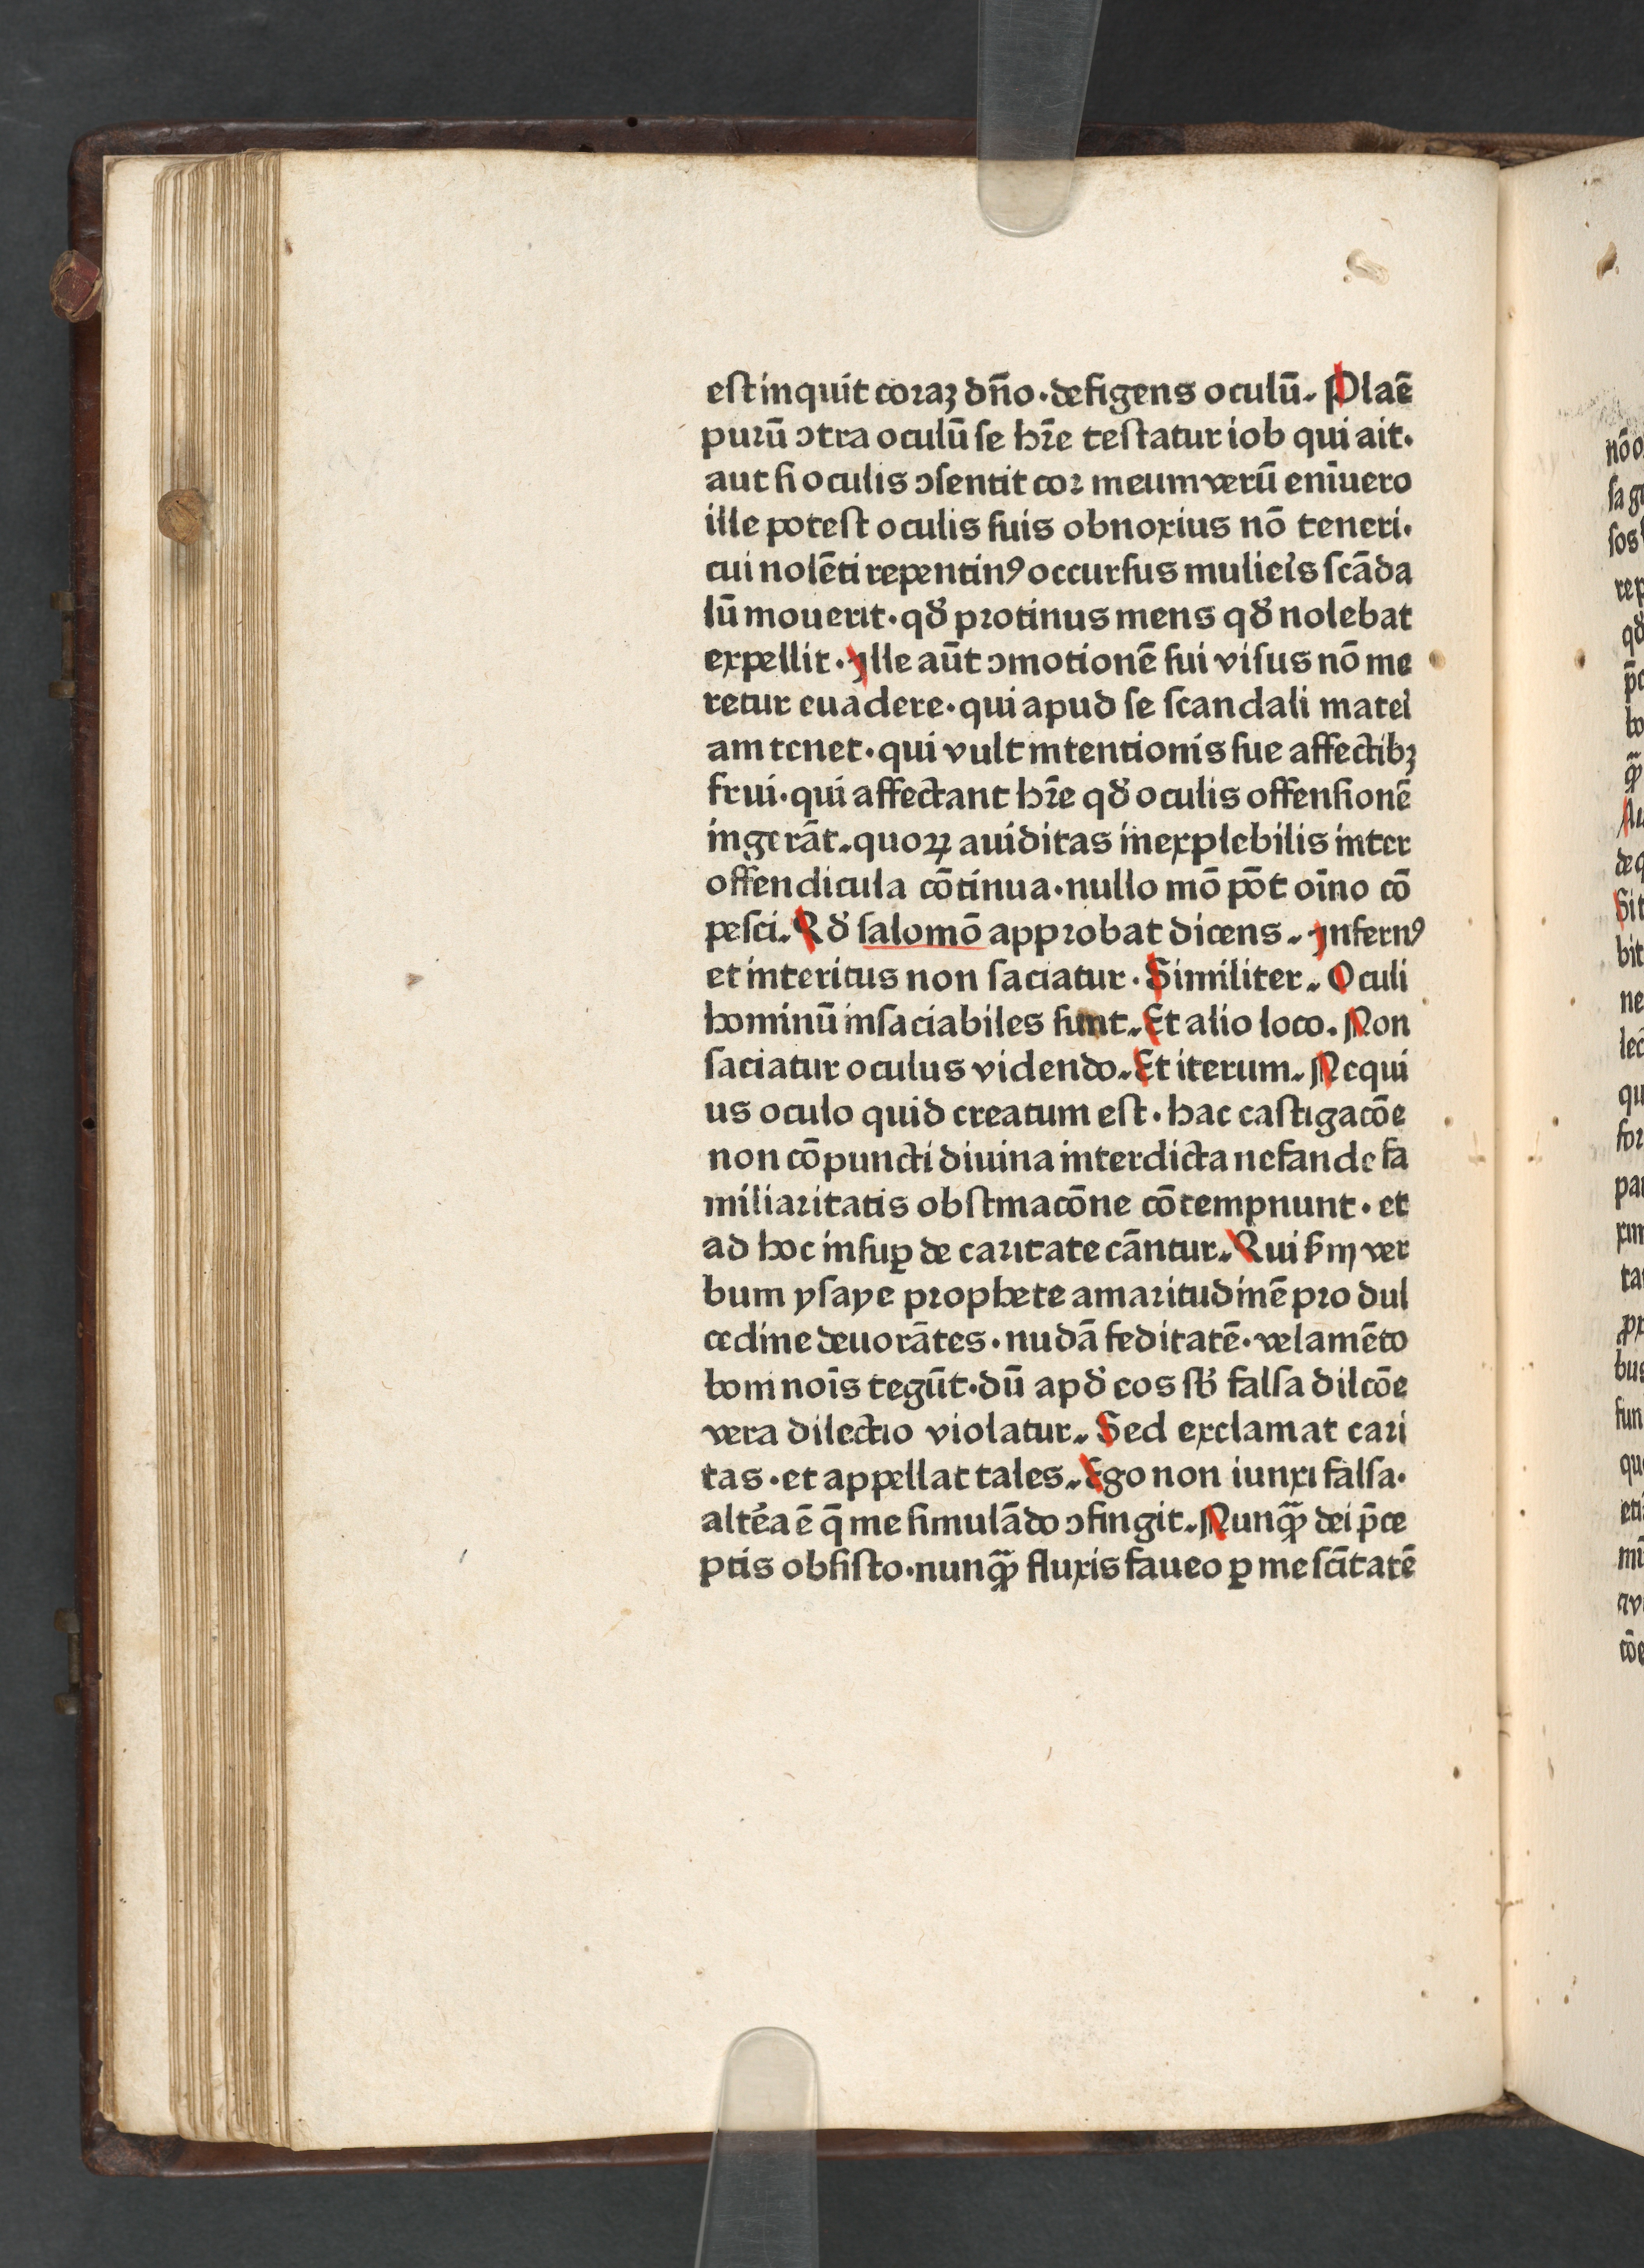 est inquit coraꝫ dn̄o·defigens oculū. Nlaē
purū ↄtra oculū se hr̄e testatur iob qui ait.
aut si oculis ↄsentit cor meum verū enīuero
ille potest oculis suis obnoxius nō teneri.
cui nolēti repentinꝰ occursus mulieīs scāda
lū mouerit·qd̛ protinus mens qd̛ nolebat
expellit·Ille aūt ↄmotionē sui visus nō me
retur euadere·qui apud se scandali mateı̓
am tenet·qui vult intentionis sue affectibꝫ
frui·qui affectant hr̄e qd̛ oculis offensionē
ingerāt.quoꝝ auiditas inexplebilis inter
offendicula cōtinua·nullo mō pōt oīno cō
pesci.Qd̛ salomō approbat dicens. Infernꝰ
et interitus non saciatur·Similiter. Oculi
hominū insaciabiles sunt.Et alio loco. Non
saciatur oculus videndo.Et iterum. Nequi
us oculo quid creatum est·hac castigacōe
non cōpuncti diuina interdicta nefande fa
miliaritatis obstinacōne cōtempnunt·et
ad hoc insuꝑ de caritate cāntur.Qui ẜm ver
bum ysaye prophete amaritudinē pro dul
cedine deuorātes·nudā feditatē·velamēto
boni noīs tegūt·dū apd̛ eos sb̛ falsa dilcōe
vera dilectio violatur. Sed exclamat cari
tas·et appellat tales.Ego non iunxi falsa·
altēa ē q̄ me simulādo ↄfingit.Nunꝙ̄ dei p̄ce
ptis obsisto·nunꝙ̄ fluxis faueo ꝑ me scītatē